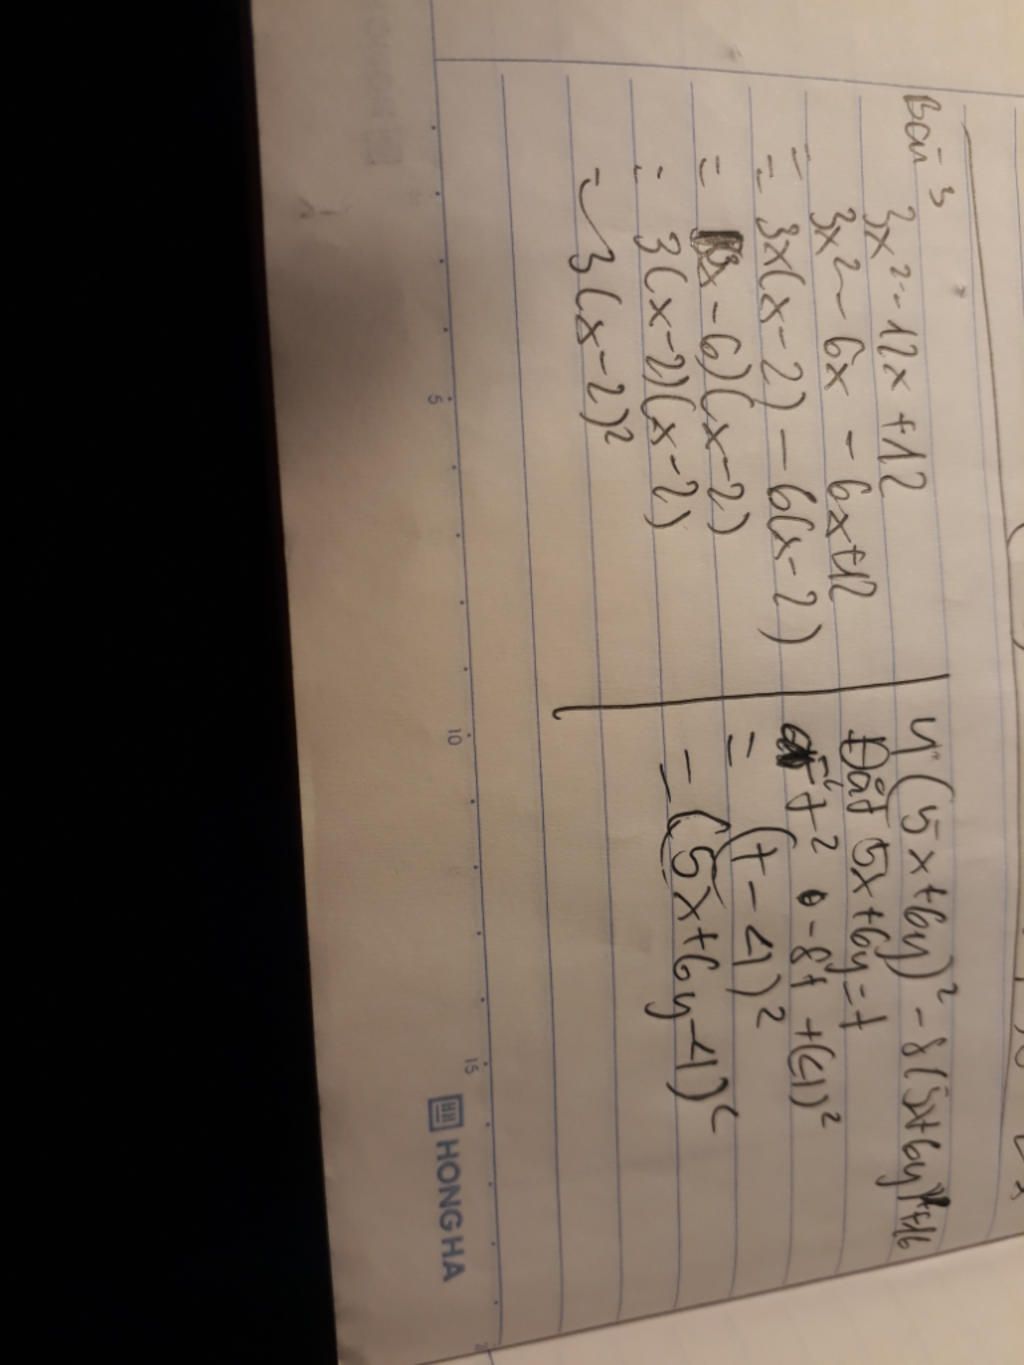 Bài 3
3x² - 12x + 12
= 3x² - 6x - 6x + 12
= 3x(x - 2) - 6(x - 2)
= (3x - 6)(x - 2)
= 3(x - 2)(x - 2)
= 3(x - 2)²
(5x + 6y)² - 8(5x + 6y) + 16
Đặt 5x + 6y = t
t² - 8t + (4)²
= (t - 4)²
= (5x + 6y - 4)²
5
10
15
HONG HA